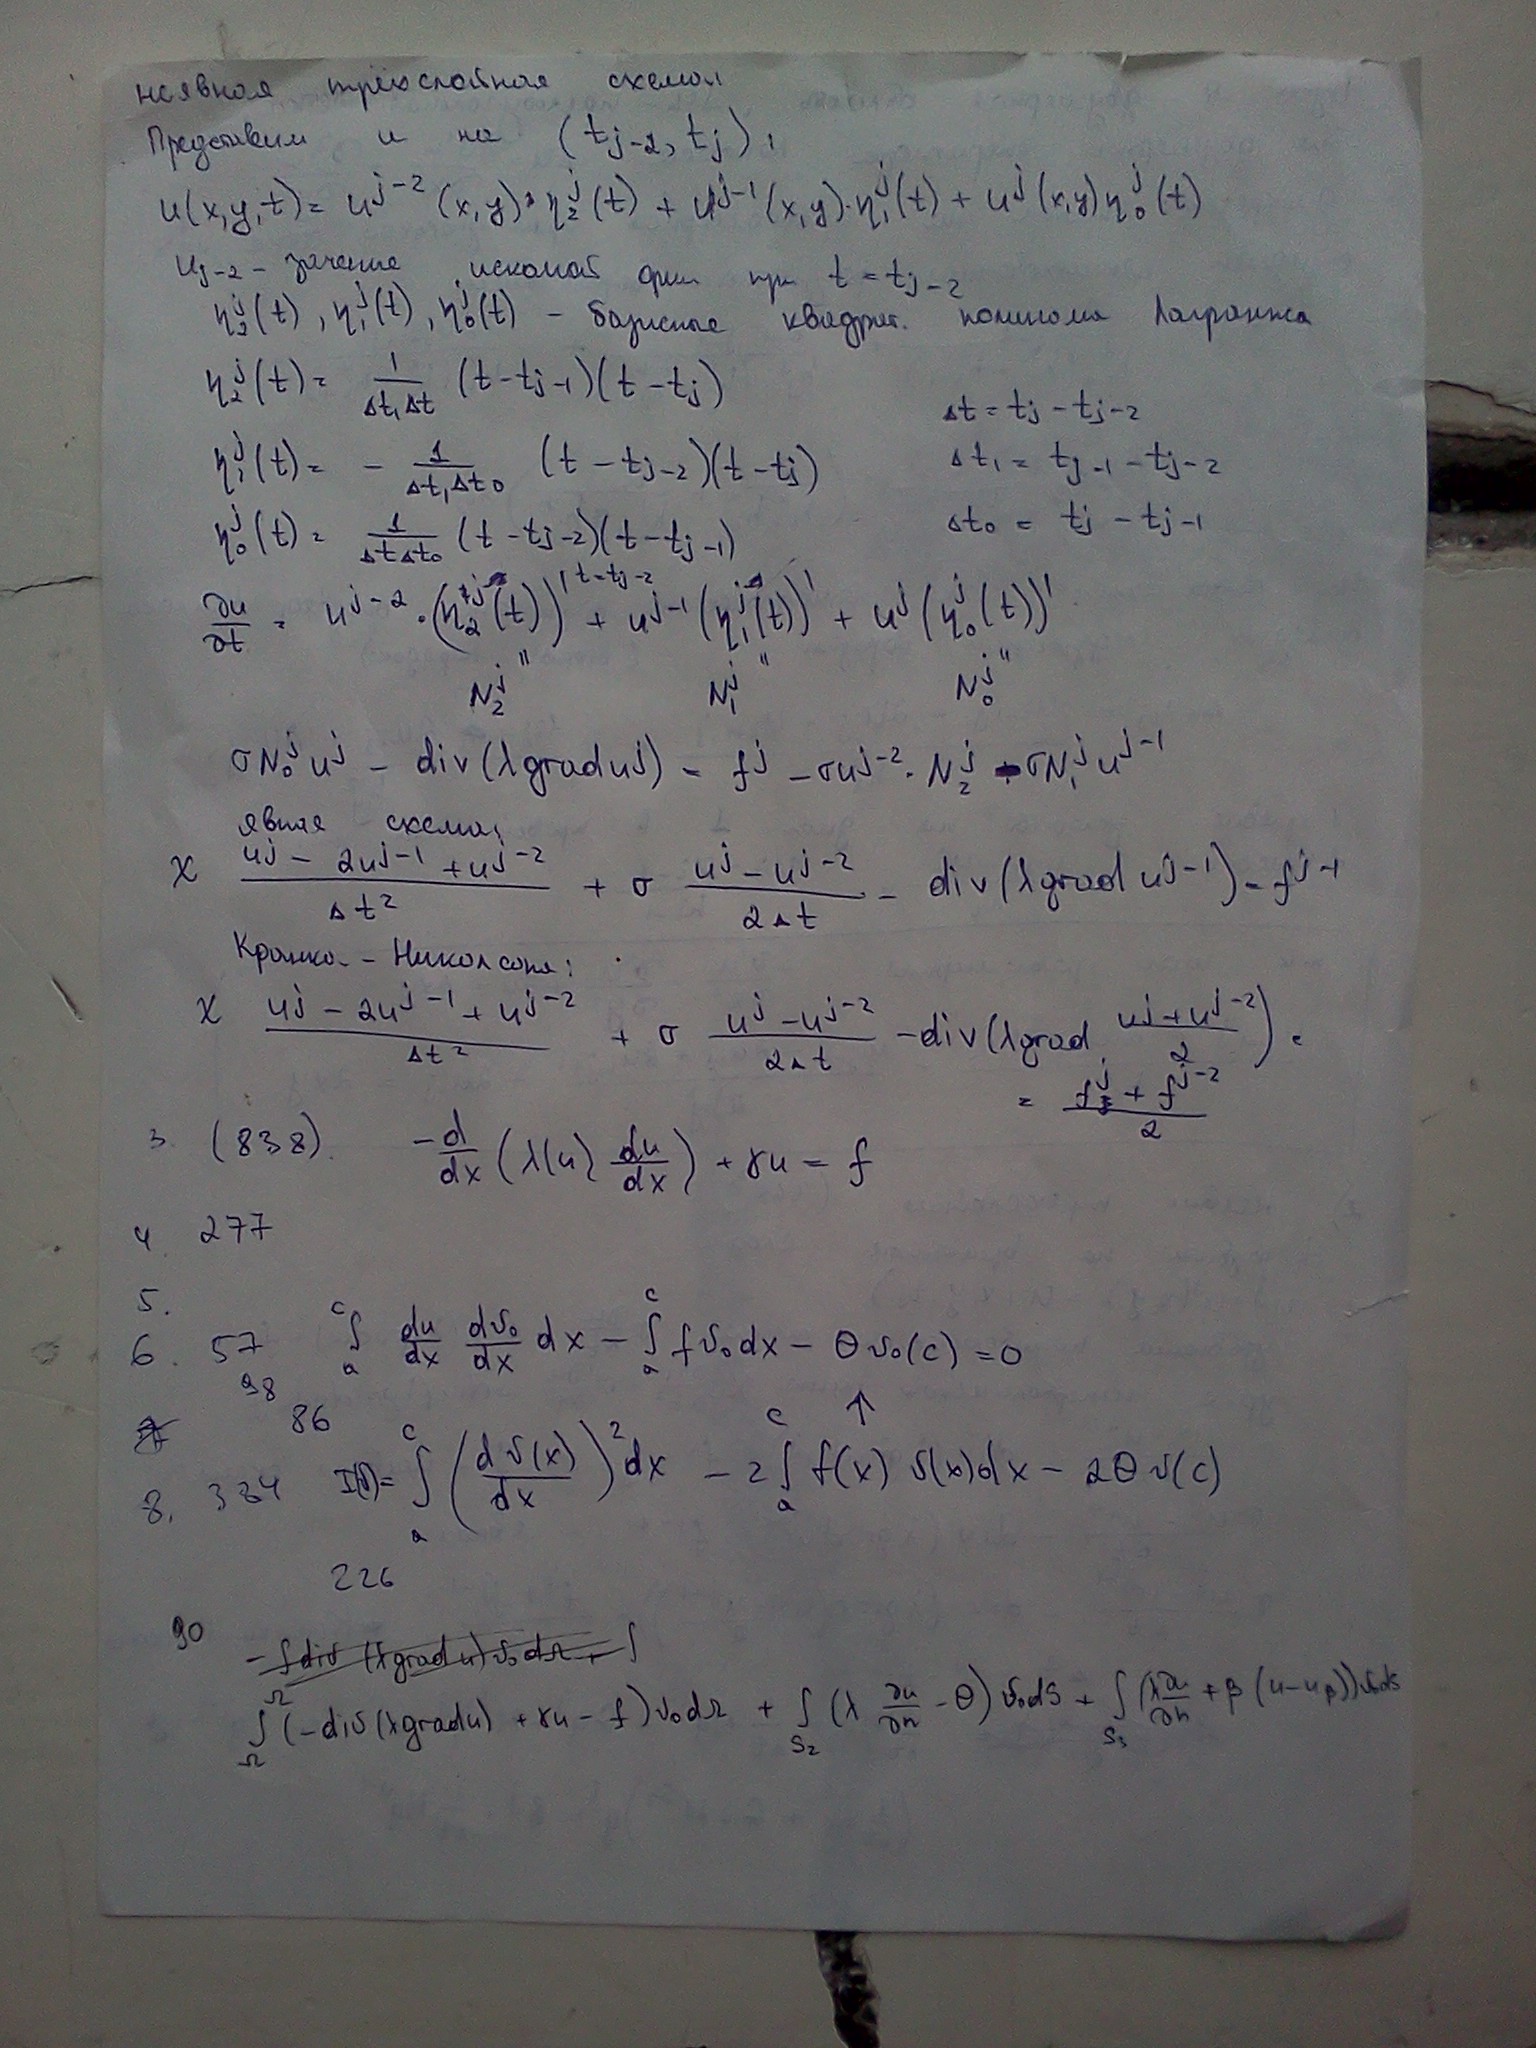 неявная трёхслойная схема
Представим u на (tj-2, tj):
u(x,y,t) = u^{j-2}(x,y)·η_2^j(t) + u^{j-1}(x,y)·η_1^j(t) + u^j(x,y)η_0^j(t)
u_{j-2} – значение искомой при t = t_{j-2}
η_2^j(t), η_1^j(t), η_0^j(t) – базисные квадрат. полинома Лагранжа
η_2^j(t) = 1/(Δt₁Δt) (t-t_{j-1})(t-t_j)
Δt = t_j - t_{j-2}
η_1^j(t) = - 1/(Δt₁Δt₀) (t-t_{j-2})(t-t_j)
Δt₁ = t_{j-1} - t_{j-2}
η_0^j(t) = 1/(ΔtΔt₀) (t-t_{j-2})(t-t_{j-1})
Δt₀ = t_j - t_{j-1}
∂u/∂t = u^{j-2}·(η_2^j(t))'^{t=t_{j-2}} + u^{j-1}(η_1^j(t))' + u^j(η_0^j(t))'
" " "
N_2^j N_1^j N_0^j
σN_0^j u^j - div(λgrad u^j) = f^j - σu^{j-2}·N_2^j - σN_1^j u^{j-1}
явная схема:
χ (u^j - 2u^{j-1} + u^{j-2})/Δt² + σ (u^j - u^{j-2})/2Δt - div(λgrad u^{j-1}) = f^{j-1}
Кранка-Николсона:
χ (u^j - 2u^{j-1} + u^{j-2})/Δt² + σ (u^j - u^{j-2})/2Δt - div(λgrad (u^j + u^{j-2})/2) =
= (f^j + f^{j-2})/2
3. (838). -d/dx (λ(u) du/dx) + γu = f
4. 277
5.
6. 57 ∫_a^c du/dx dv₀/dx dx - ∫_a^c f v₀ dx - θv₀(c) = 0
98
86 ↑
8. 334 I(v) = ∫_a^c (dv(x)/dx)² dx - 2∫_a^c f(x) v(x)dx - 2θv(c)
226
90
∫_Ω (-div(λgradu) + γu - f)v₀dΩ + ∫_{S₂} (λ ∂u/∂n - θ)v₀dS + ∫_{S₃} (λ∂u/∂n + β(u-u_β))v₀dS